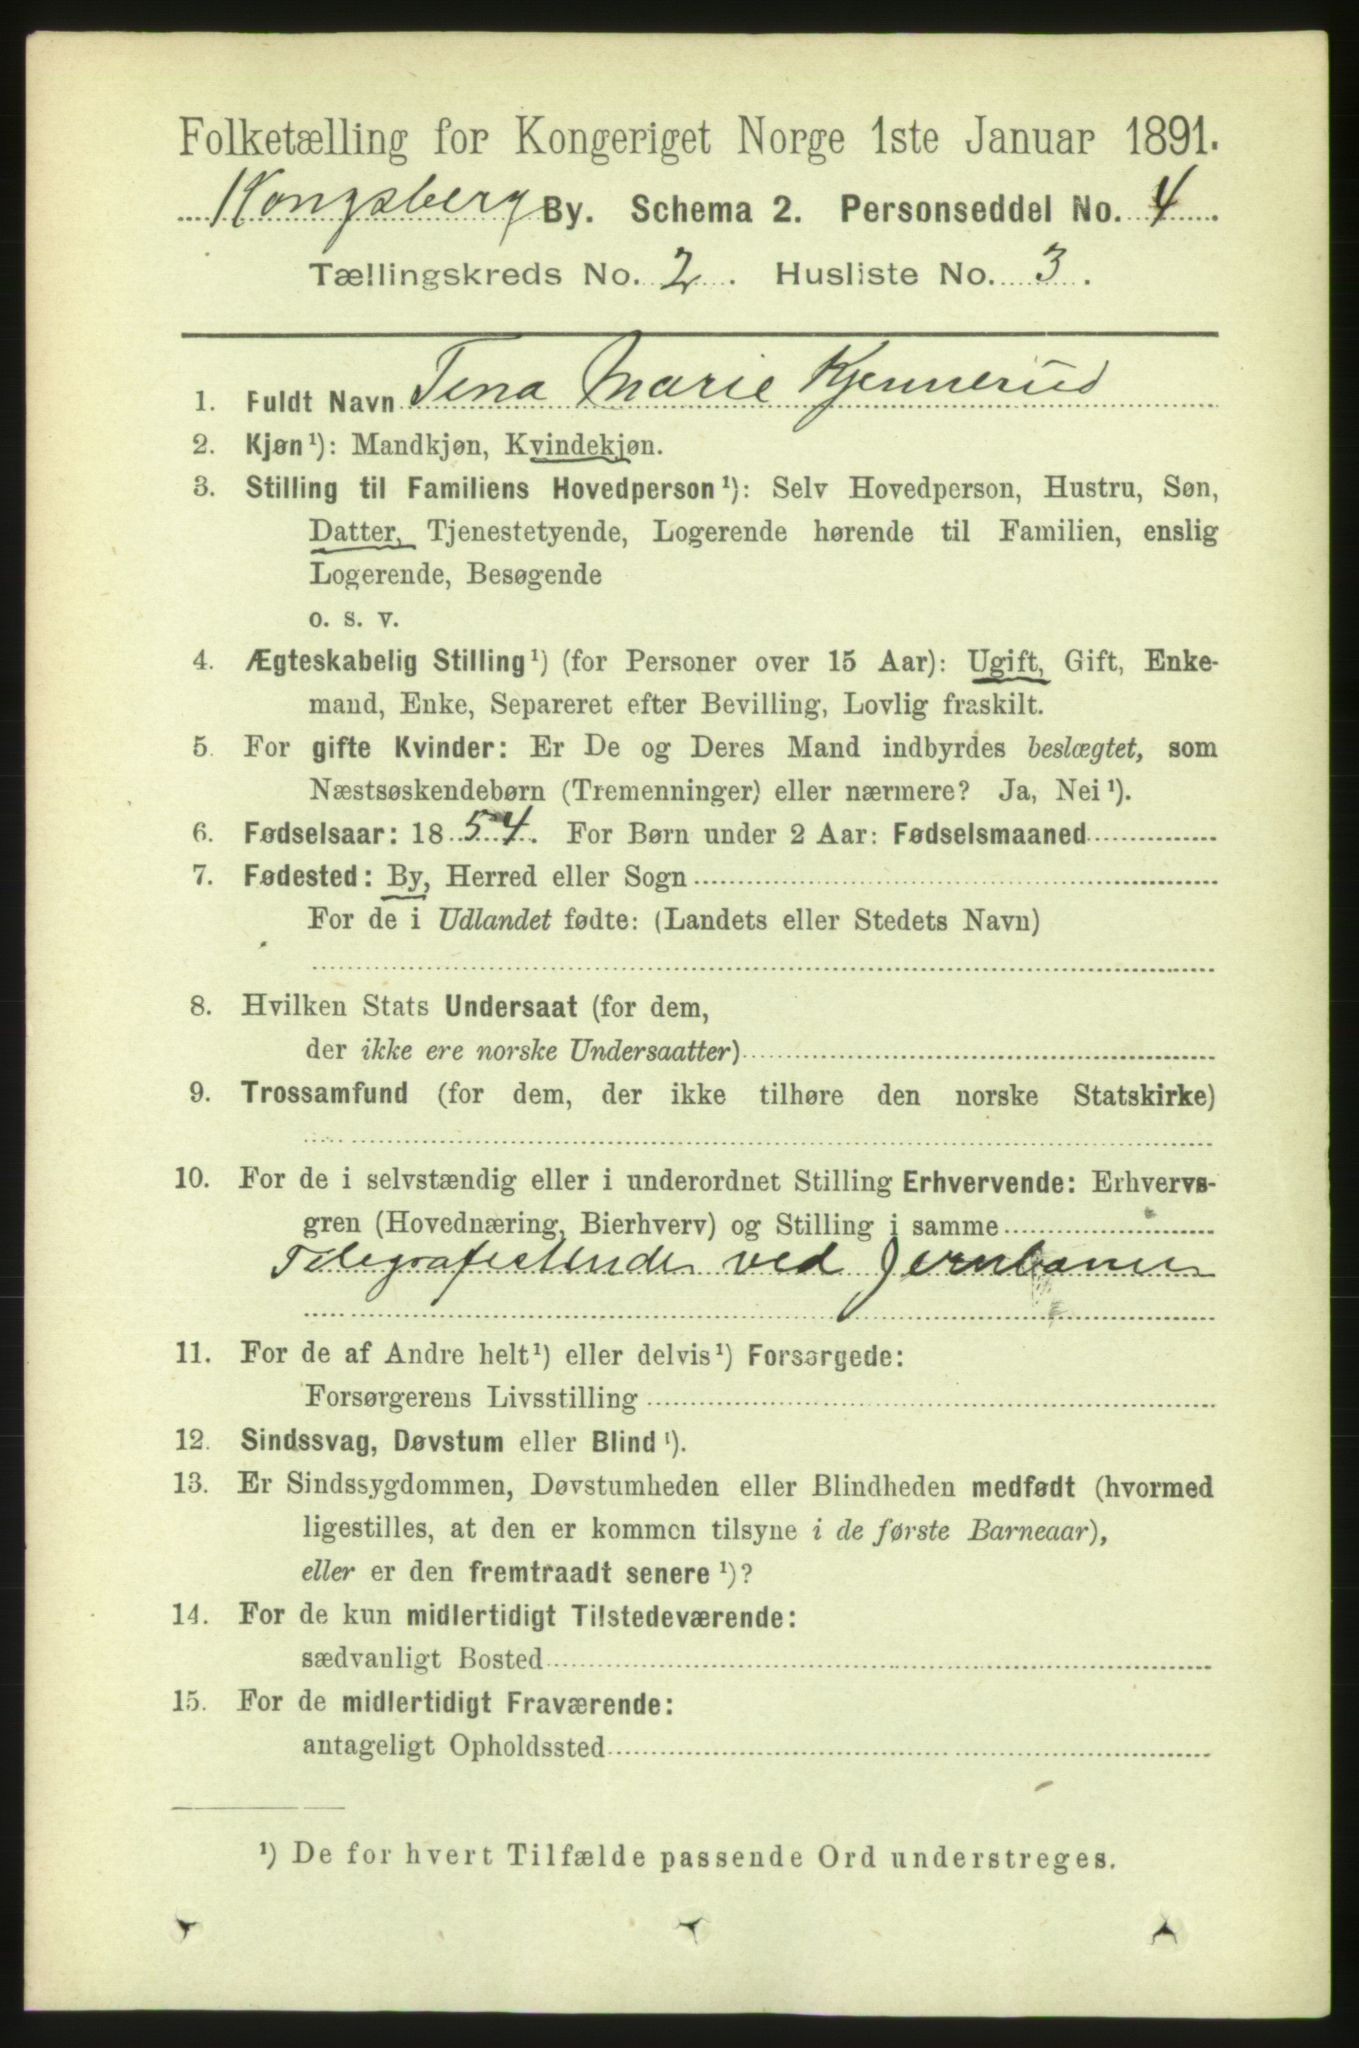 Folketælling for Kongeriget Norge 1ste Januar 1891.
Kongsberg By. Schema 2. Personseddel No. 4.
Tællingskreds No. 2. Husliste No. 3.
1. Fuldt Navn Tina Marie Kjennerud
2. Kjøn¹): Mandkjøn, Kvindekjøn.
3. Stilling til Familiens Hovedperson¹): Selv Hovedperson, Hustru, Søn,
Datter, Tjenestetyende, Logerende hørende til Familien, enslig
Logerende, Besøgende
o. s. v.
4. Ægteskabelig Stilling¹) (for Personer over 15 Aar): Ugift, Gift, Enke-
mand, Enke, Separeret efter Bevilling, Lovlig fraskilt.
5. For gifte Kvinder: Er De og Deres Mand indbyrdes beslægtet, som
Næstsøskendebørn (Tremenninger) eller nærmere? Ja, Nei¹).
6. Fødselsaar: 1854. For Børn under 2 Aar: Fødselsmaaned
7. Fødested: By, Herred eller Sogn
For de i Udlandet fødte: (Landets eller Stedets Navn)
8. Hvilken Stats Undersaat (for dem,
der ikke ere norske Undersaatter)
9. Trossamfund (for dem, der ikke tilhøre den norske Statskirke)
10. For de i selvstændig eller i underordnet Stilling Erhvervende: Erhvervs-
gren (Hovednæring, Bierhverv) og Stilling i samme
Telegrafistinde ved Jernbanen
11. For de af Andre helt¹) eller delvis¹) Forsørgede:
Forsørgerens Livsstilling
12. Sindssvag, Døvstum eller Blind¹).
13. Er Sindssygdommen, Døvstumheden eller Blindheden medfødt (hvormed
ligestilles, at den er kommen tilsyne i de første Barneaar),
eller er den fremtraadt senere¹)?
14. For de kun midlertidigt Tilstedeværende:
sædvanligt Bosted
15. For de midlertidigt Fraværende:
antageligt Opholdssted
¹) De for hvert Tilfælde passende Ord understreges.